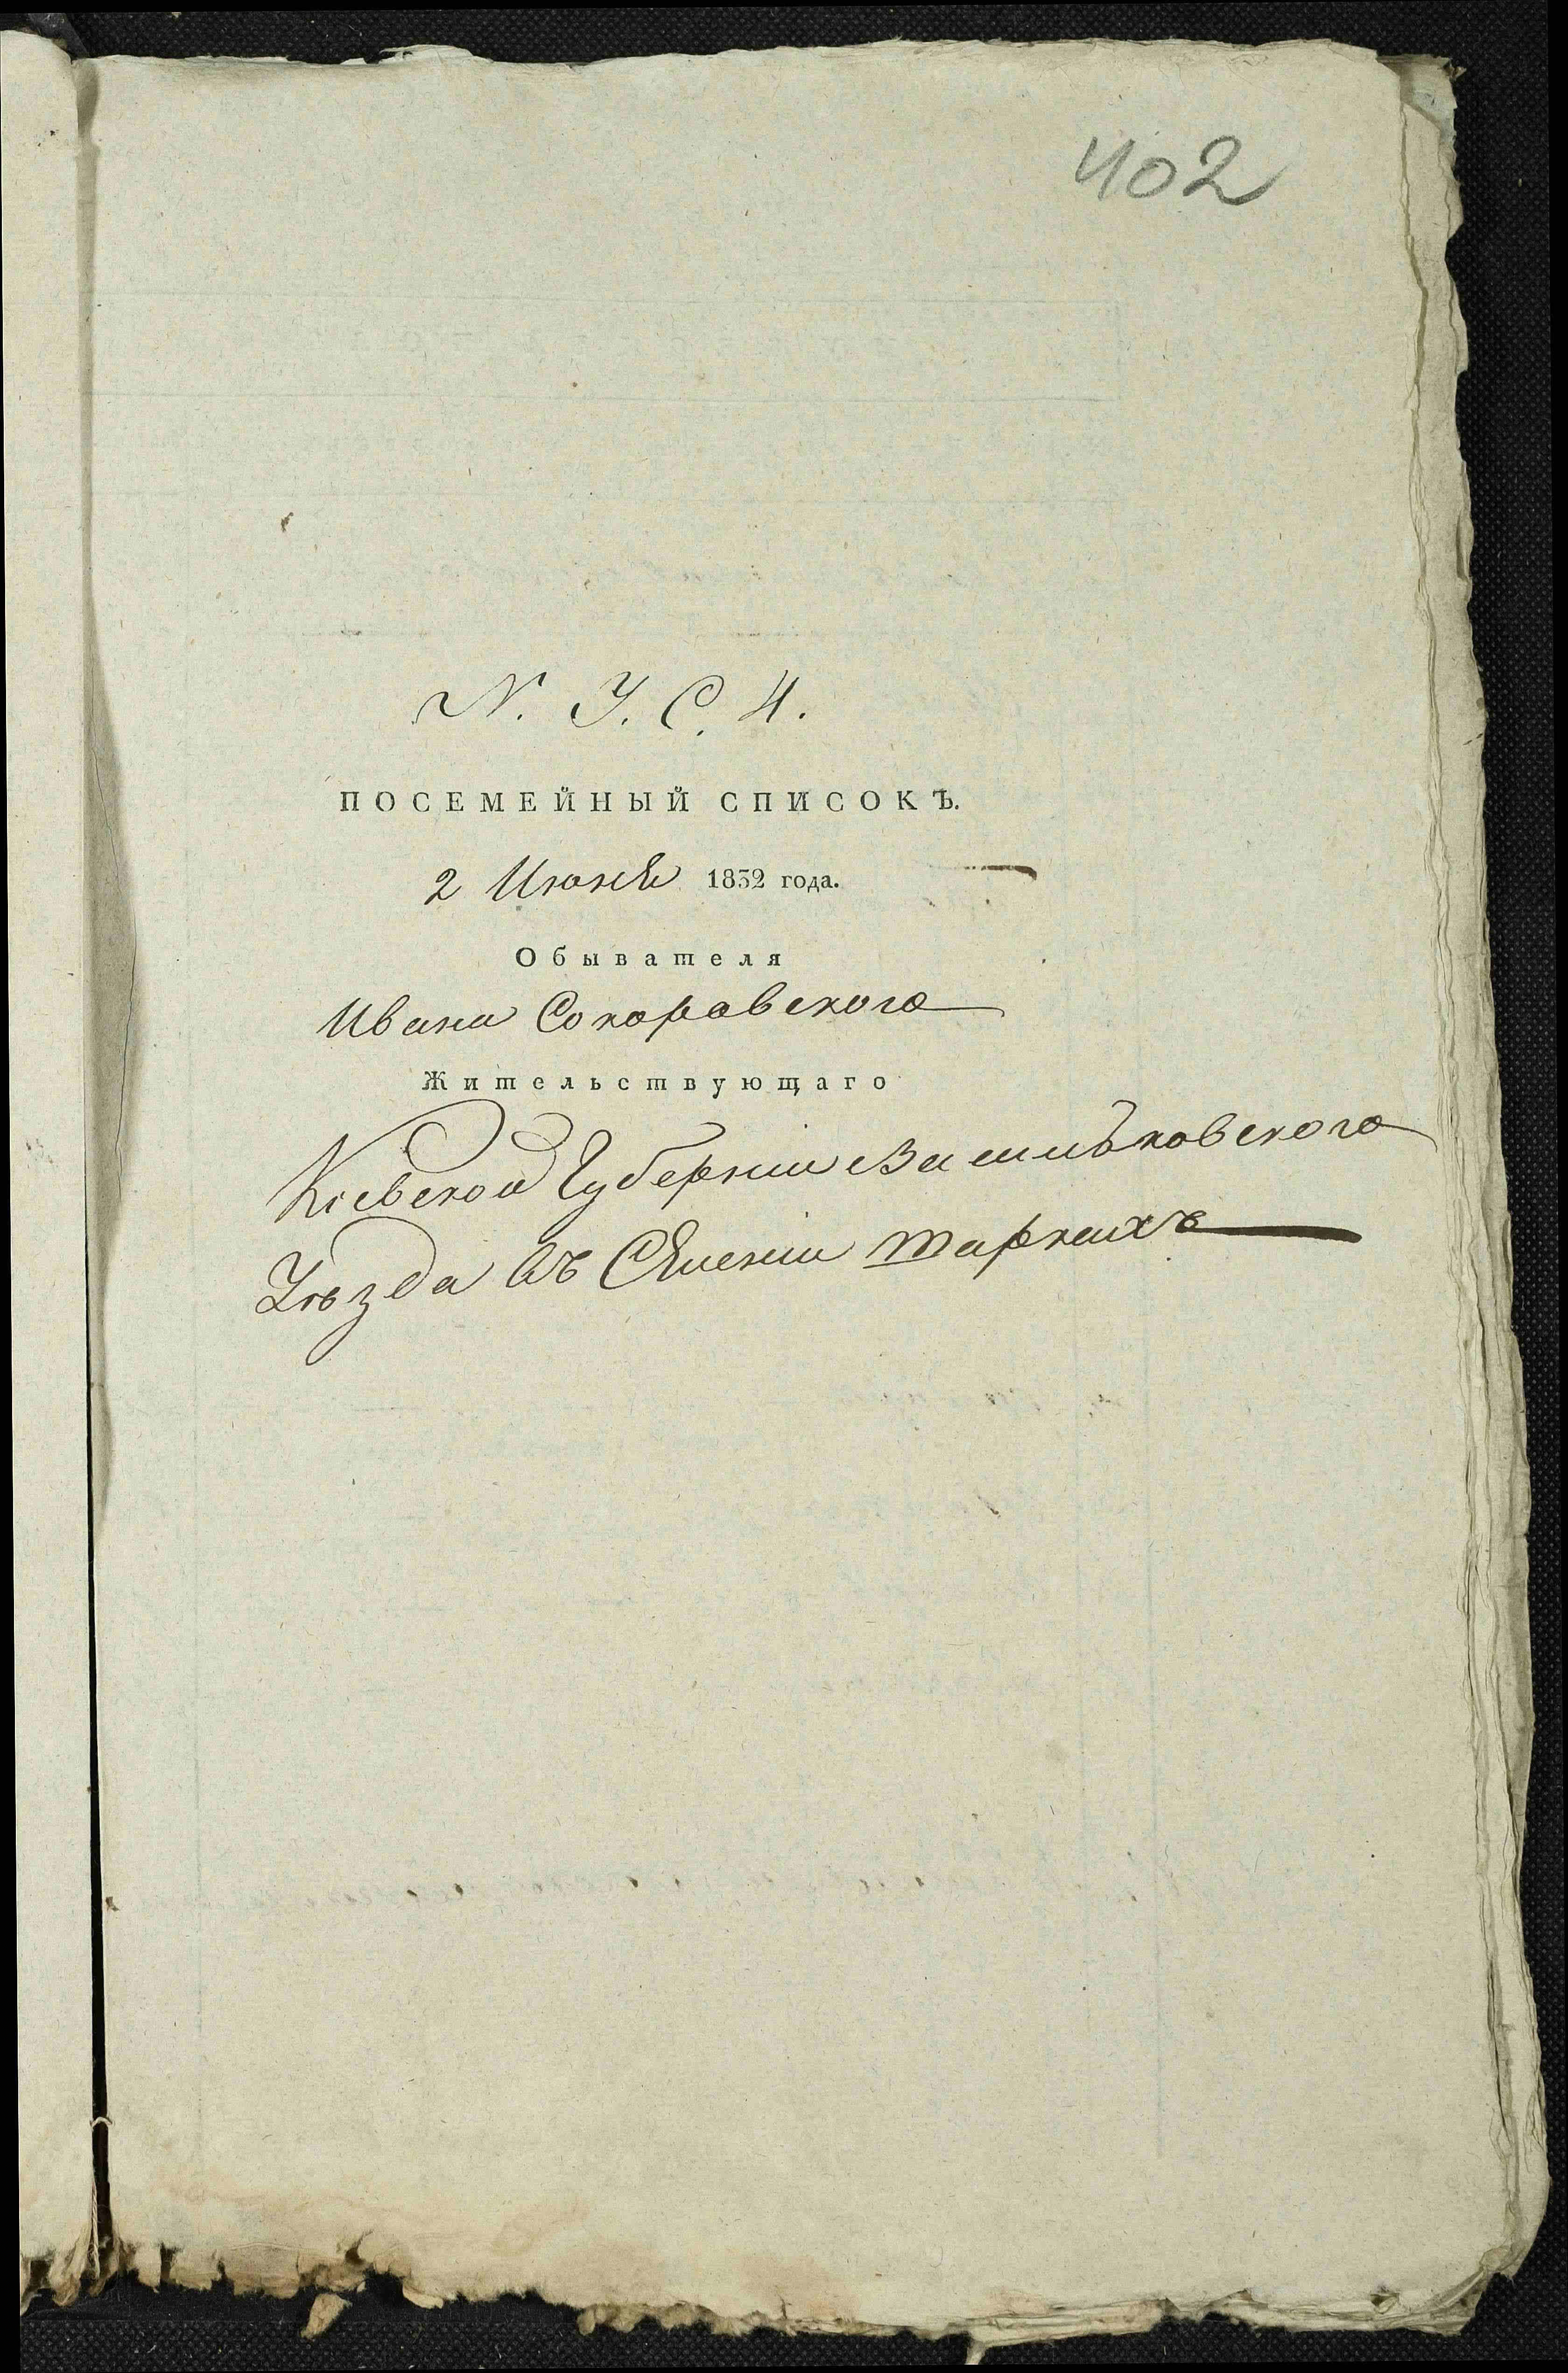 402
N. У. С. 4.
ПОСЕМЕЙНЫЙ СПИСОКЪ.
2 Июня 1832 года.
Обывателя
Ивана Сокоровского
Жительствующаго
Кіевской Губерніи Васильковского
Уѣзда въ Селеніи